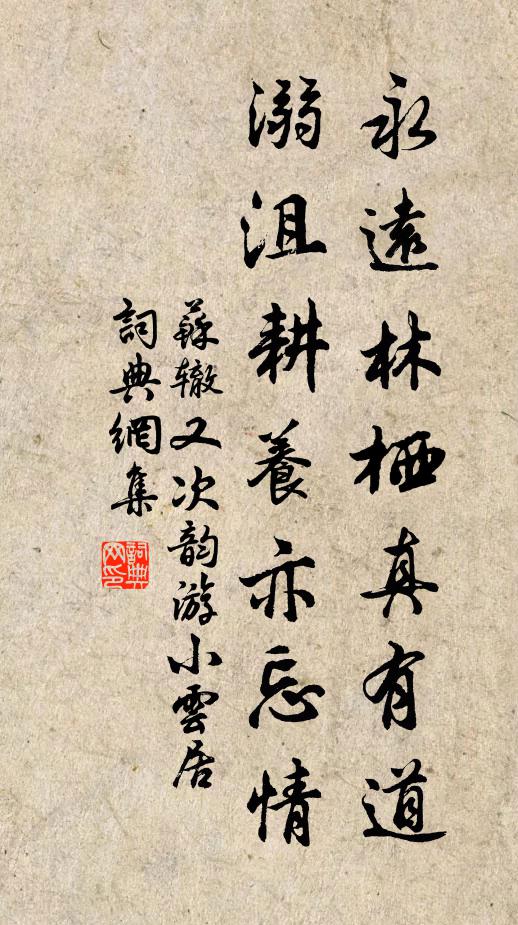 永遠林栖真有道
溺沮耕養亦忘情
蘇辙又次韵游小雲居
詞典網集
詞典
网印